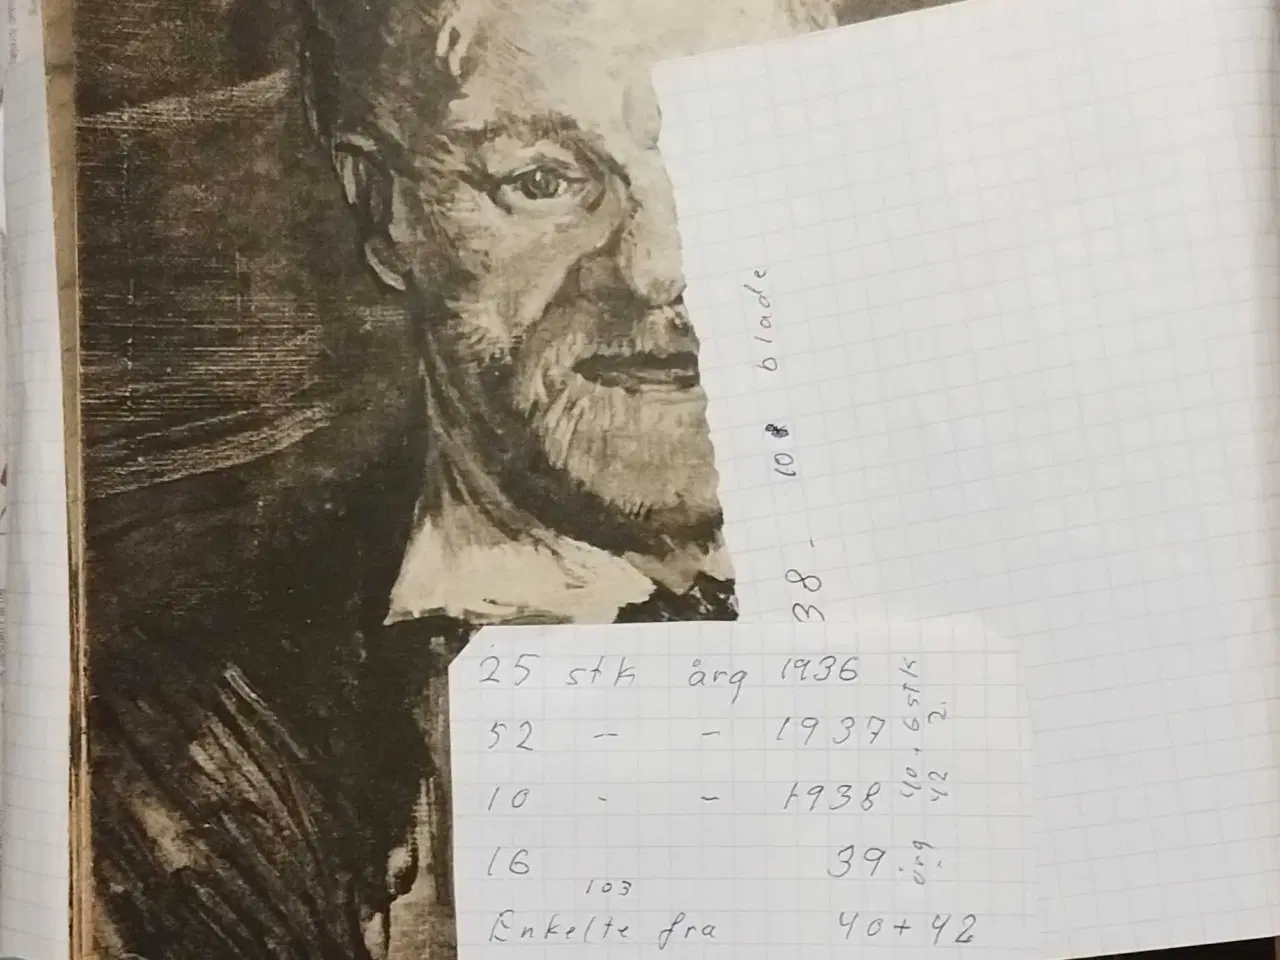 38 - 10 blade
25 stk årg 1936
52 - - 1937
10 - - 1938
16 39
103
Enkelte fra 40 + 42
årg 40 - 6 stk
- 42 2.